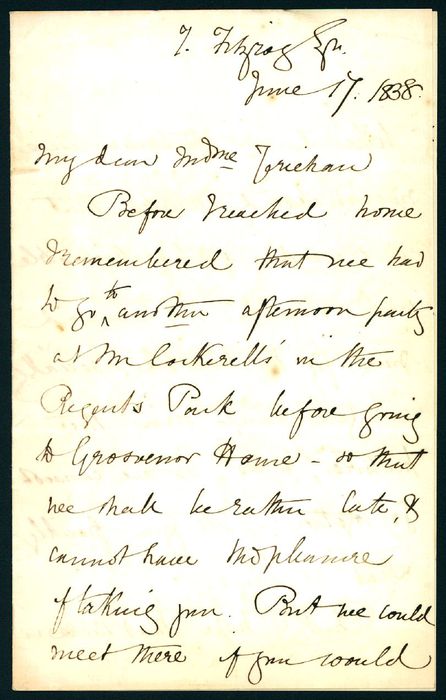 7. Fitzroy Sqr.
June 17. 1838.
My dear Mdme
Before I reached home
I remembered that we had
to go to another afternoon party
at Mr Cockerell's in the
Regents Park before going
to Grosvenor House - so that
we shall be rather late, &
cannot have the pleasure
of taking you. But we could
meet there if you would